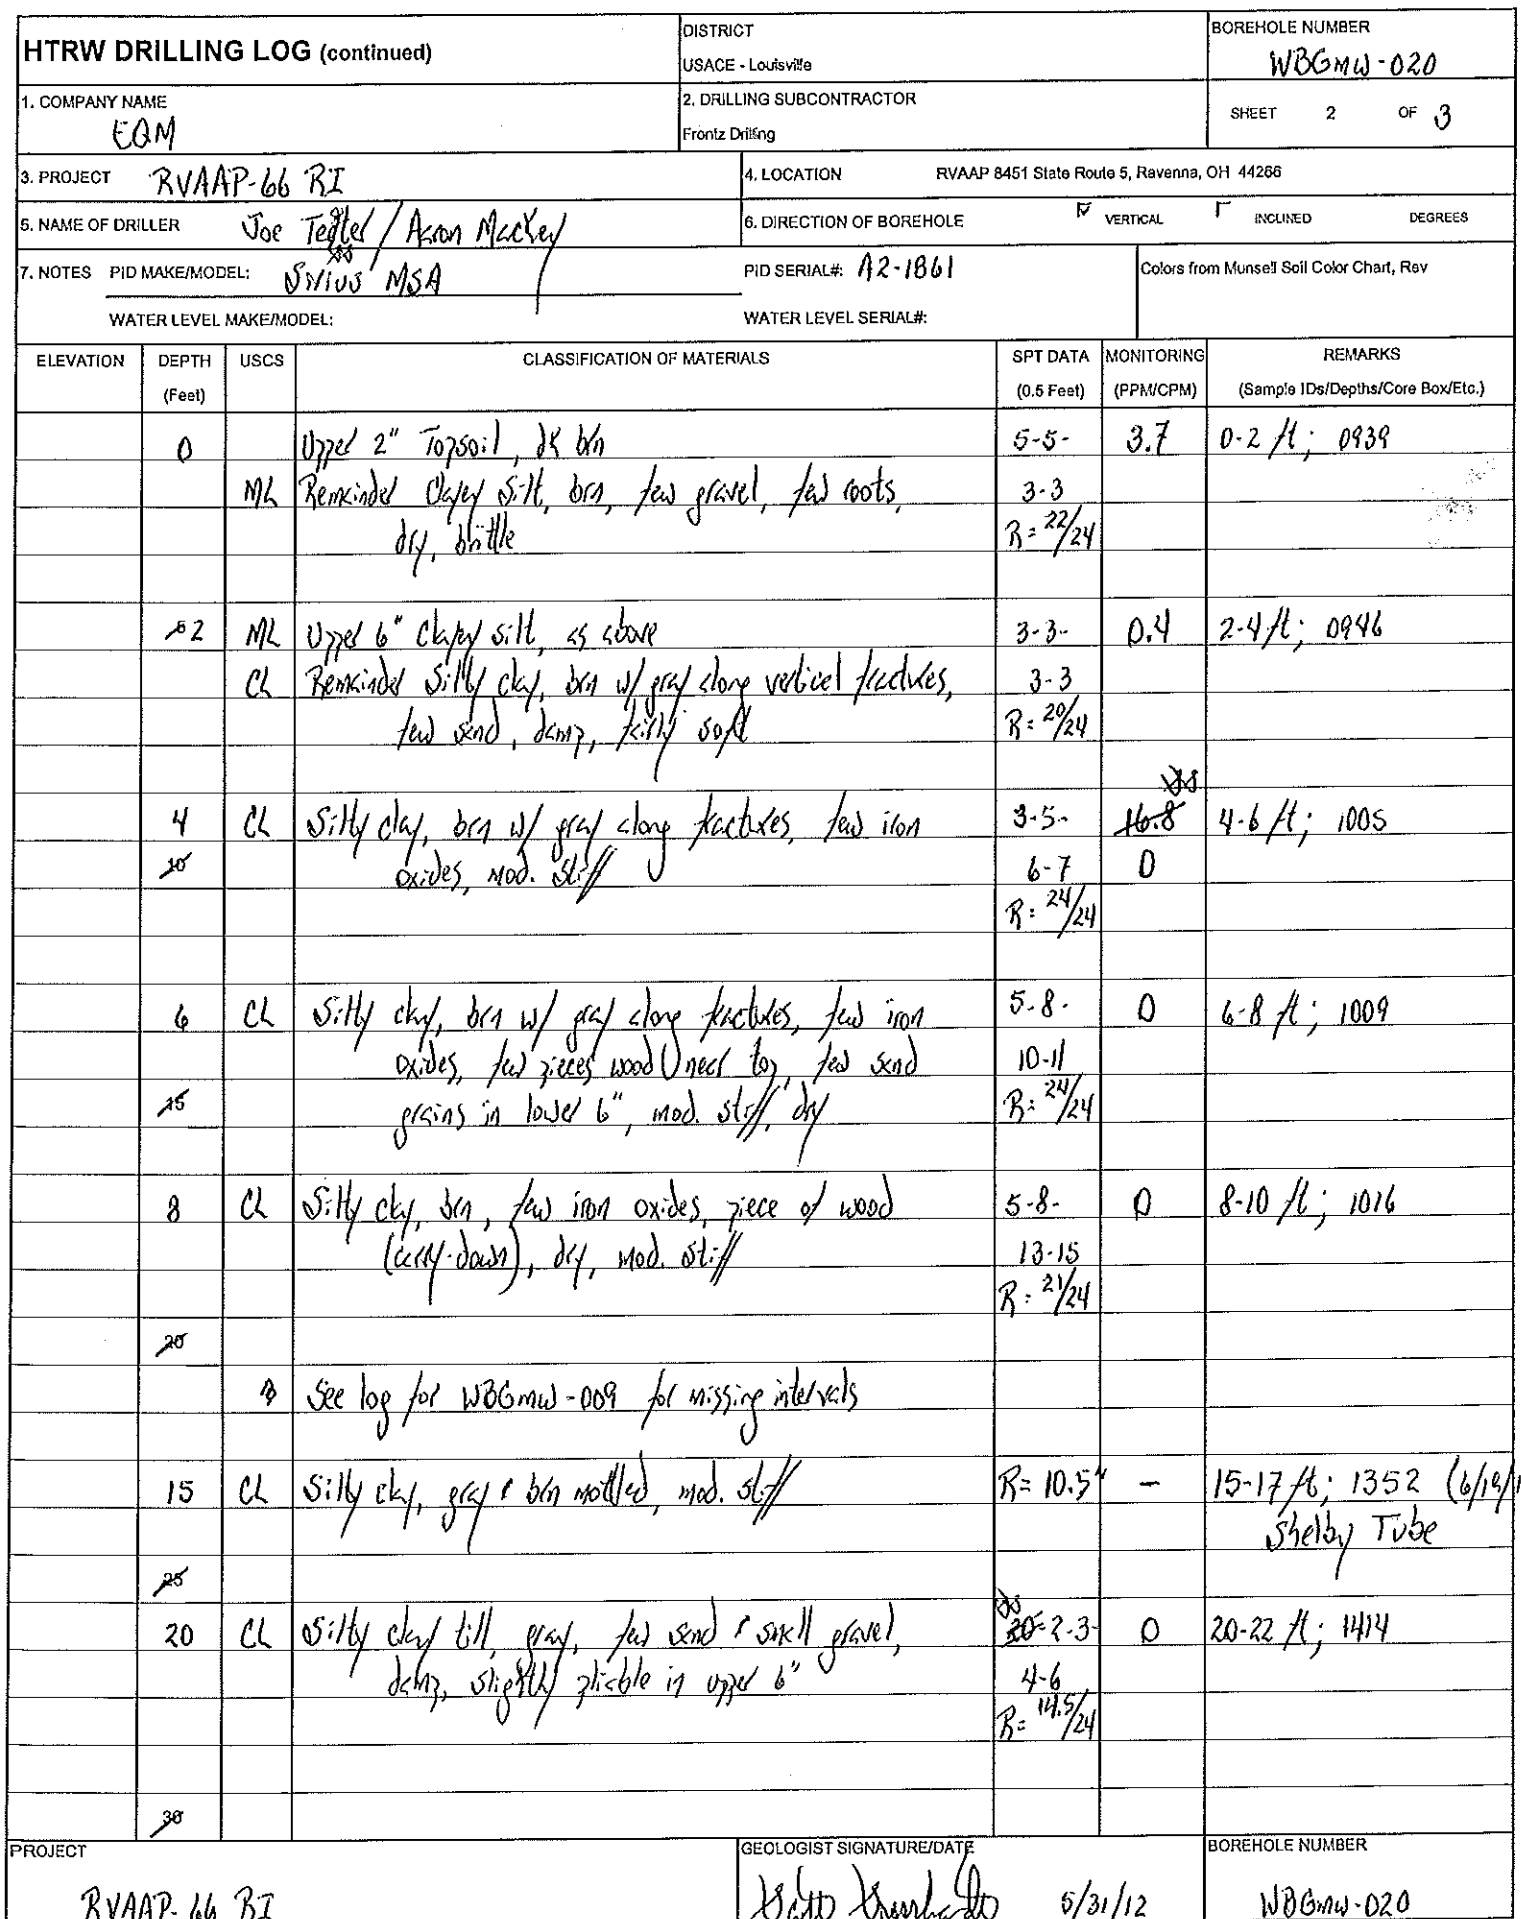 HTRW DRILLING LOG (continued)
DISTRICT
USACE - Louisville
BOREHOLE NUMBER
WBGmw-020
1. COMPANY NAME
EQM
2. DRILLING SUBCONTRACTOR
Frontz Drilling
SHEET 2 OF 3
3. PROJECT RVAAP-66 RI
4. LOCATION RVAAP 8451 State Route 5, Ravenna, OH 44266
5. NAME OF DRILLER Joe / Aaron Mackey
6. DIRECTION OF BOREHOLE VERTICAL INCLINED DEGREES
7. NOTES PID MAKE/MODEL: Sirius MSA
PID SERIAL#: A2-1861
Colors from Munsell Soil Color Chart, Rev
WATER LEVEL MAKE/MODEL:
WATER LEVEL SERIAL#:
ELEVATION DEPTH USCS CLASSIFICATION OF MATERIALS SPT DATA MONITORING REMARKS
(Feet) (0.5 Feet) (PPM/CPM) (Sample IDs/Depths/Core Box/Etc.)
0 Upper 2" Topsoil, dk brn 5-5- 3.7 0-2 ft; 0939
ML Remainder Clayey silt, brn, few gravel, few roots, 3-3
dry, brittle R= 22/24
5 2 ML Upper 6" Clayey silt, as above 3-3- 0.4 2-4 ft; 0946
CL Remainder Silty clay, brn w/ gray along vertical fractures, 3-3
few sand, damp, fairly soft R= 20/24
4 CL Silty clay, brn w/ gray along fractures, few iron 3-5- 16.8 4-6 ft; 1005
10 oxides, mod. stiff 6-7 0
R= 24/24
6 CL Silty clay, brn w/ gray along fractures, few iron 5-8- 0 6-8 ft; 1009
oxides, few pieces wood near top, few sand 10-11
15 grains in lower 6", mod. stiff, dry R= 24/24
8 CL Silty clay, brn, few iron oxides, piece of wood 5-8- 0 8-10 ft; 1016
(carry-down), dry, mod. stiff 13-15
R= 21/24
20
See log for WBGmw-009 for missing intervals
15 CL Silty clay, gray & brn mottled, mod. stiff R= 10.5" - 15-17 ft; 1352 (6/19/1
Shelby Tube
25
20 CL Silty clay till, gray, few sand & small gravel, 2-3- 0 20-22 ft; 1414
damp, slightly pliable in upper 6" 4-6
R= 14.5/24
30
PROJECT
RVAAP-66 RI
GEOLOGIST SIGNATURE/DATE
5/31/12
BOREHOLE NUMBER
WBGmw-020